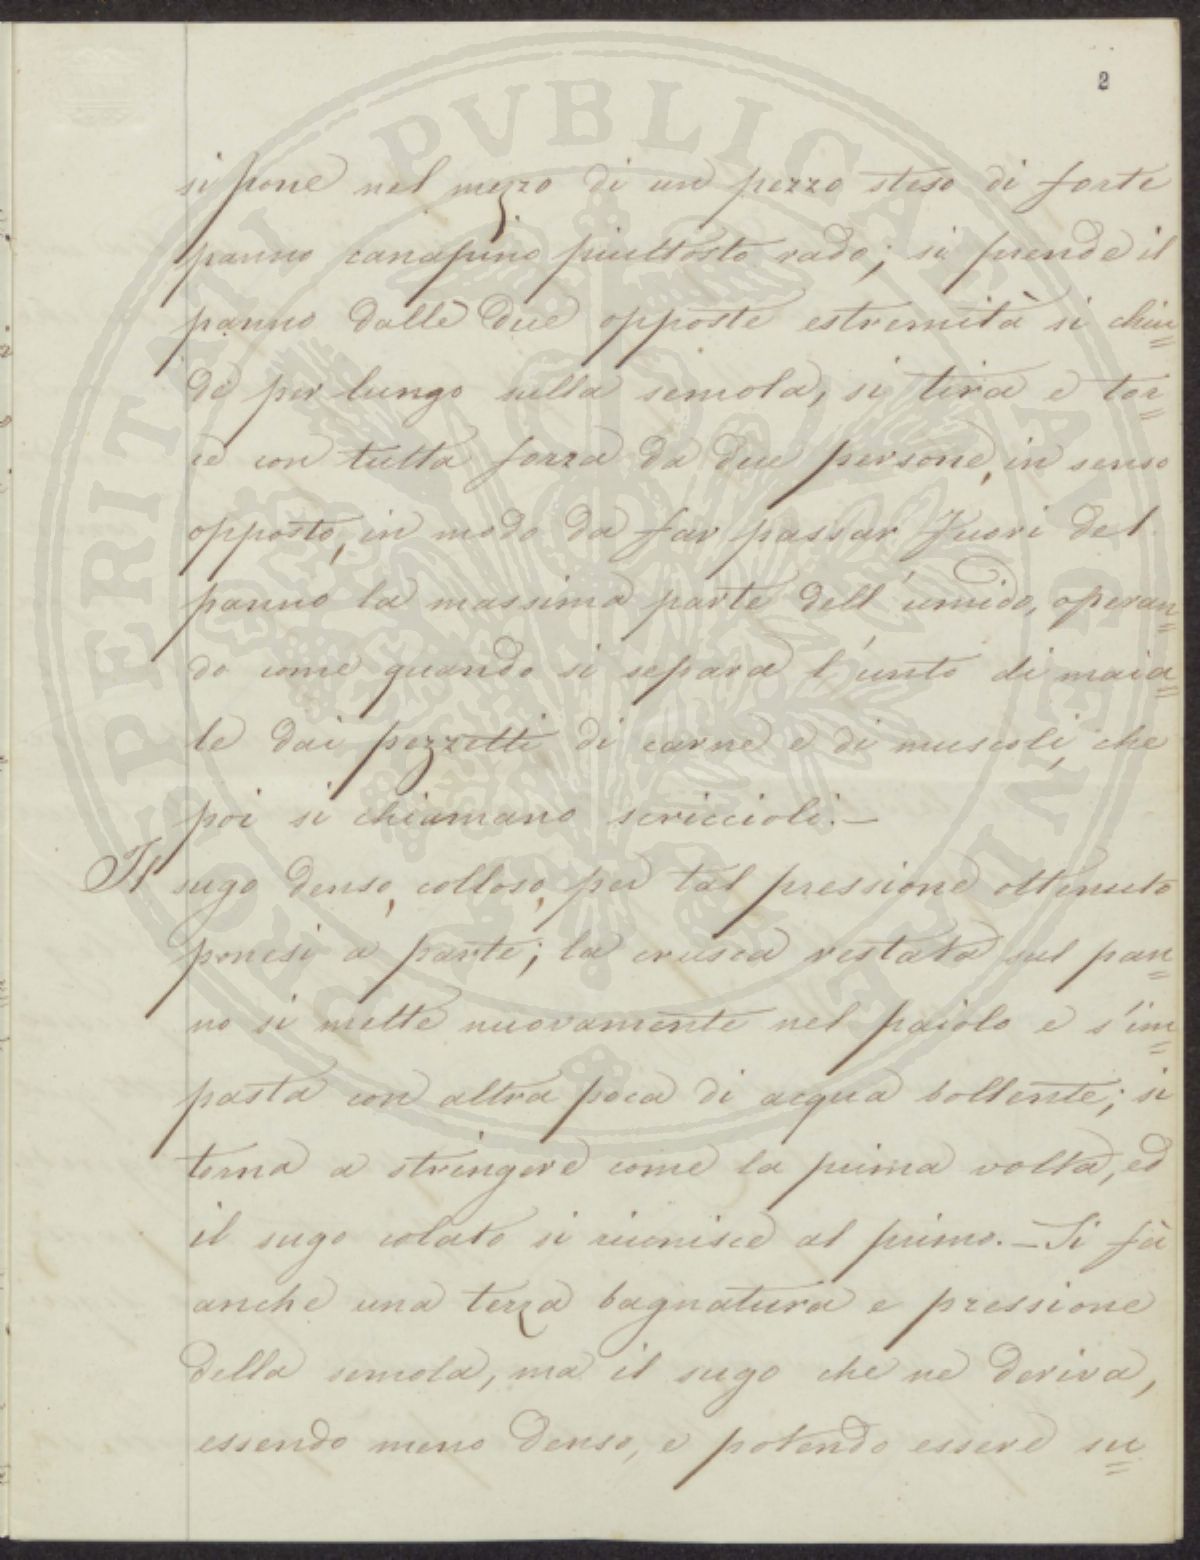 2
si pone nel mezzo di un pezzo steso di forte
panno canapino piuttosto rado; si prende il
panno dalle due opposte estremità si chiu=
de per lungo sulla semola, si tira e tor=
ce con tutta forza da due persone, in senso
opposto, in modo da far passar fuori del
panno la massima parte dell'umido, operan=
do come quando si separa l'unto di maia=
le dai pezzetti di carne e di muscoli, che
poi si chiamano scriccioli. —
Il sugo denso, colloso, per tal pressione ottenuto
ponesi a parte; la crusca restata sul pan=
no si mette nuovamente nel paiolo e s'im=
pasta con altra poca di acqua bollente; si
torna a stringere come la prima volta, ed
il sugo colato si riunisce al primo. — Si fà
anche una terza bagnatura e pressione
della semola, ma il sugo che ne deriva,
essendo meno denso, e potendo essere su=
PROSPERITATI PVBLICAE AVGENDAE